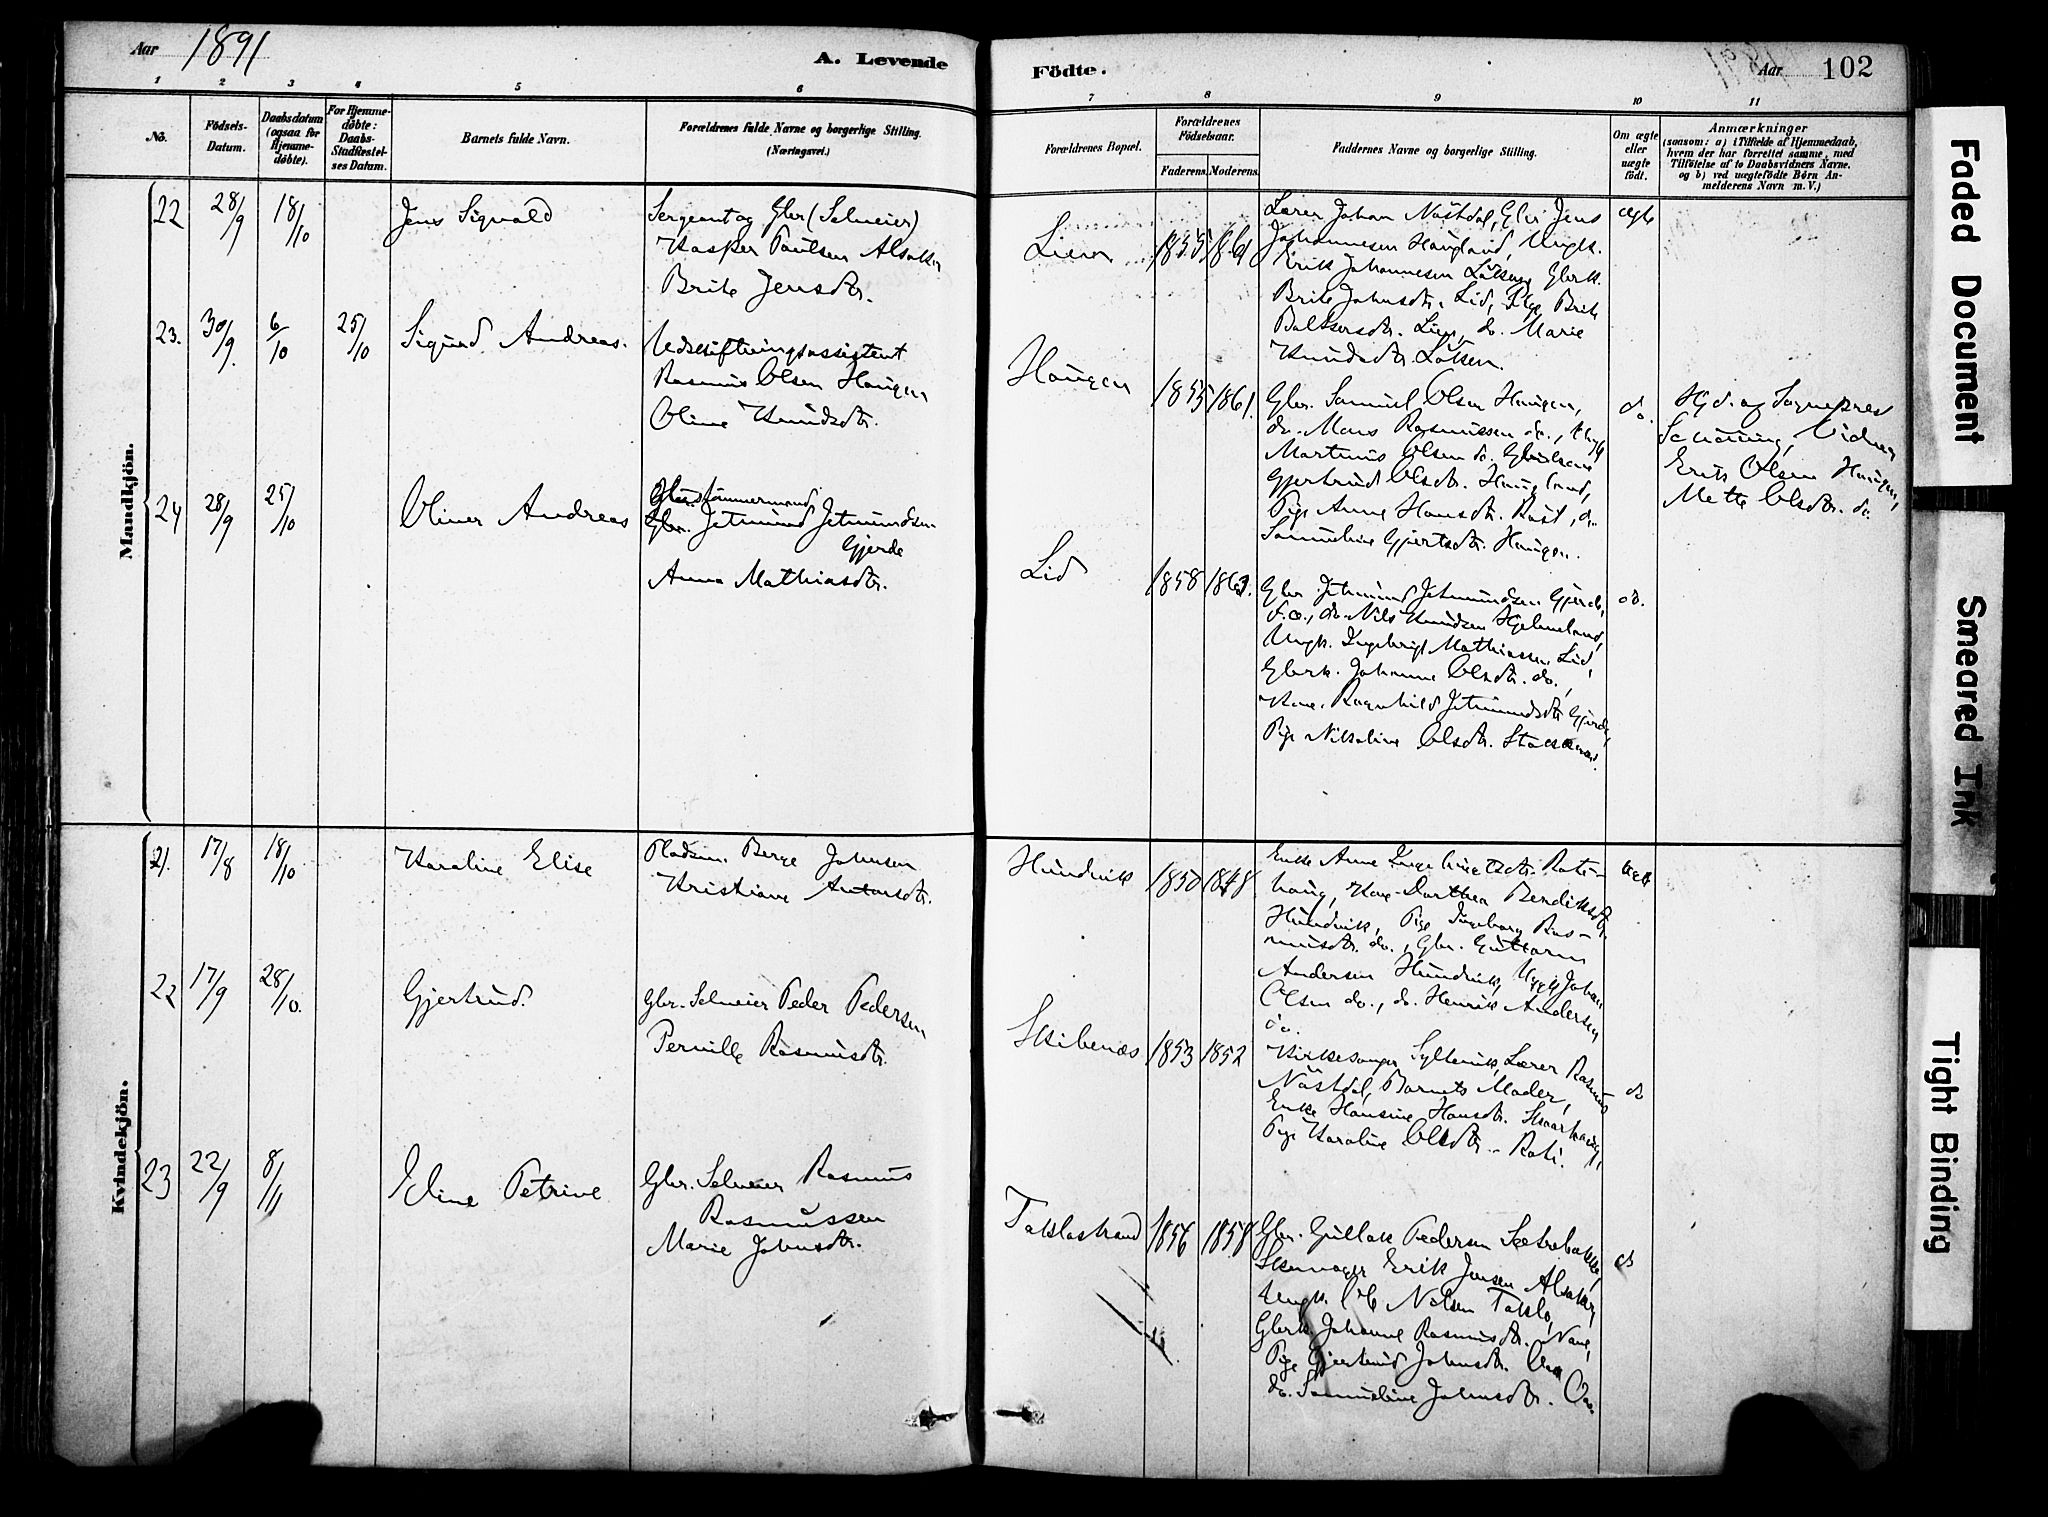 Aar 1891
A. Levende
Födte.
Aar 102
1 2 3 4 5 6 7 8 9 10 11
No.
Födsels-
Datum.
Daabsdatum
(ogsaa for
Hjemme-
döbte).
For Hjemme-
döbte:
Daabs-
Stadfæstel-
ses Datum.
Barnets fulde Navn.
Forældrenes fulde Navne og borgerlige Stilling.
(Næringsvei.)
Forældrenes Bopæl.
Forældrenes
Födselsaar.
Faderens. Moderens.
Faddernes Navne og borgerlige Stilling.
Om ægte
eller
uægte
födt.
Anmærkninger
(saasom: a) i Tilfælde af Hjemmedaab,
hvem der har forrettet samme, med
Tilföielse af to Daabsvidners Navne.
og b) ved uægtefödte Börn An-
melderens Navn m. V.)
Mandkjön.
22 28/9 18/10
Jens Sigvald
Sergeant og Gbr (Selveier)
Kasper Paulsen Alsaker
Brite Jensdtr.
Lien
1855 1861
Lærer Johan Nöstdal, Gbr. Jens
Johannesen Haugland, Ungk.
Erik Johannesen Lötsen, Gbrk.
Brite Johnsdtr. Lid, Pige Brite
Baltsersdtr. Lien, do. Marie
Knudsdtr. Lötsen.
ægte
23. 30/9. 6/10 25/10
Sigurd Andreas.
Udskiftningsassistent
Rasmus Olsen Haugen
Oline Knudsdtr.
Haugen
1855 1861.
Gbr. Samuel Olsen Haugen,
do. Mons Rasmussen do.,
Martinus Olsen do.
Gjertrud Olsdtr. Haugland,
Pige Anne Hansdtr. Röst, do.
Samueline Gjertsdtr. Haugen.
do.
Hjd. af Sogneprest
Schöning, Vidner
Erik Olsen Haugen,
Mette Olsdtr. do.
24 28/9 25/10
Oliver Andreas
Gbr. Jetmund Jetmundsen
Gjerde
Anna Mathiasdtr.
Lid
1858 1863.
Gbr. Jetmund Jetmundsen Gjerde,
F. o., do. Nils Knudsen Hjelmeland,
Ungk. Ingebrigt Mathiassen Lid,
Gbrk. Johanne Olsdtr. do.,
Kone Ragnhild Jetmundsdtr Gjerde,
Pige Nikoline Olsdtr.
do.
Kvindekjön.
21. 17/8 18/10
Karoline Elise
Pladsm. Berge Johnsen
Kristiane Antonsdtr.
Hundvik
1850 1848
Enke Anne Ingebrigtsdtr. Roti-
haug, Kone Dorthea Bendiksdtr.
Hundvik, Pige Ingeborg Ras-
musdtr. do., Gbr. Guttorm
Andersen Hundvik, Ungk. Johan
Olsen do., do. Henrik Andersen
do.
ægte
22 17/9 28/10.
Gjertrud.
Gbr. Selveier Peder Pedersen
Pernille Rasmusdtr.
Skibenæs
1853 1852
Kirkesanger Sylteviik, Lærer Rasmus
Nöstdal, Barnets Moder,
Enke Hansine Hansdtr. Skaarhaug,
Pige Karoline Olsdtr. Roti.
do
23 22/9 8/11
Eline Petrine
Gbr. Selveier Rasmus
Rasmussen
Marie Johnsdtr.
Taklostrand
1856 1858
Gbr. Gullak Pedersen Sætrebakke,
Skomager Erik Jensen Alsaker,
Ungk. Ole Nilsen Taklo,
Gbrk. Johanne Rasmusdtr. Nave,
Pige Gjertrud Johnsdtr. Oen
do. Samueline Johnsdtr. Oen.
do
Faded Document
Smeared Ink
Tight Binding